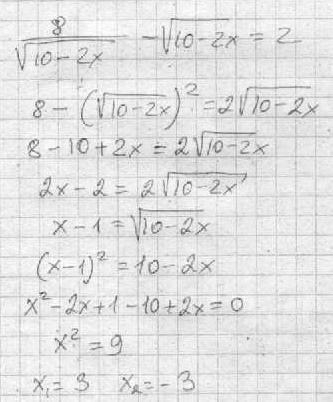 8/√(10-2x) - √(10-2x) = 2
8 - (√(10-2x))² = 2√(10-2x)
8 - 10 + 2x = 2√(10-2x)
2x - 2 = 2√(10-2x)
x - 1 = √(10-2x)
(x-1)² = 10 - 2x
x² - 2x + 1 - 10 + 2x = 0
x² = 9
x₁ = 3 x₂ = -3